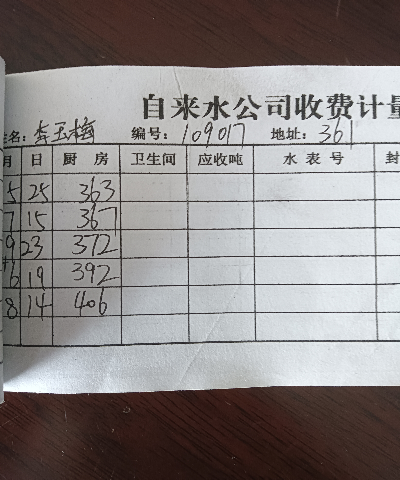 自来水公司收费计量
名: 李玉梅 编号: 109017 地址: 361
月 日 厨房 卫生间 应收吨 水表号 封
5 25 363
7 15 367
9 23 372
6 19 392
8 14 406